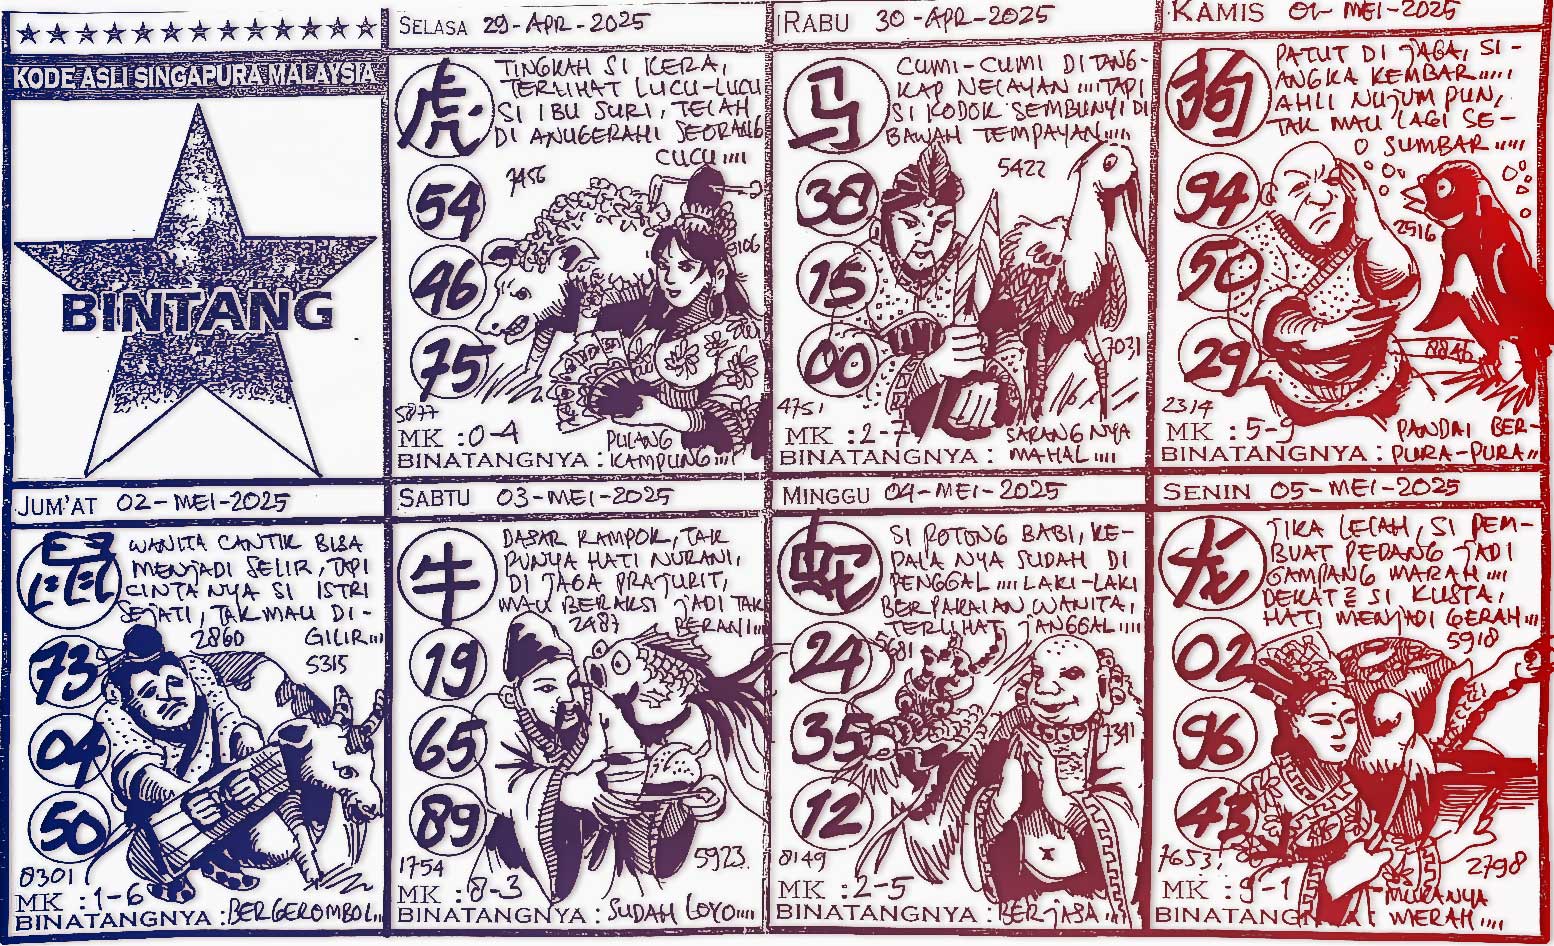 KODE ASLI SINGAPURA MALAYSIA
BINTANG
SELASA 29-APR-2025
虎
TINGKAH SI KERA,
TERLIHAT LUCU-LUCU
SI IBU SURI, TELAH
DI ANUGERAHI SEORANG
CUCU''''
54
46
75
7456
5877
MK : 0-4
BINATANGNYA : PULANG
KAMPUNG''''
RABU 30-APR-2025
马
CUMI-CUMI DI TANG-
KAP NELAYAN''''TAPI
SI KODOK SEMBUNYI DI
BAWAH TEMPAYAN''''
38
15
00
5422
7031
4751
MK : 2-7
BINATANGNYA : SARANG NYA
MAHAL''''
KAMIS 01-MEI-2025
狗
PATUT DI JAGA, SI-
ANGKA KEMBAR''''
AHLI NUJUM PUN,
TAK MAU LAGI SE-
SUMBAR''''
94
50
29
2516
8846
2314
MK : 5-9
BINATANGNYA : PANDAI BER-
PURA-PURA''''
JUM'AT 02-MEI-2025
鼠
WANITA CANTIK BISA
MENJADI SELIR, TAPI
CINTA NYA SI ISTRI
SEJATI, TAK MAU DI-
GILIR''''
73
04
50
2860
5315
8301
MK : 1-6
BINATANGNYA : BERGEROMBOL''''
SABTU 03-MEI-2025
牛
DASAR RAMPOK, TAK
PUNYA HATI NURANI,
DI JAGA PRAJURIT,
MAU BERAKSI JADI TAK
BERANI''''
19
65
89
2487
1754
5923
MK : 8-3
BINATANGNYA : SUDAH LOYO''''
MINGGU 04-MEI-2025
蛇
SI POTONG BABI, KE-
PALA NYA SUDAH DI
PENGGAL''''LAKI-LAKI
BERPAKAIAN WANITA,
TERLIHAT JANGGAL''''
24
35
12
5681
7391
8149
MK : 2-5
BINATANGNYA : BERJASA''''
SENIN 05-MEI-2025
龙
JIKA LELAH, SI PEM-
BUAT PEDANG JADI
GAMPANG MARAH''''
DEKAT2 SI KUSTA,
HATI MENJADI GERAH''''
02
96
43
5918
7653
2798
MK : 9-1
BINATANGNYA : MUKANYA
MERAH''''